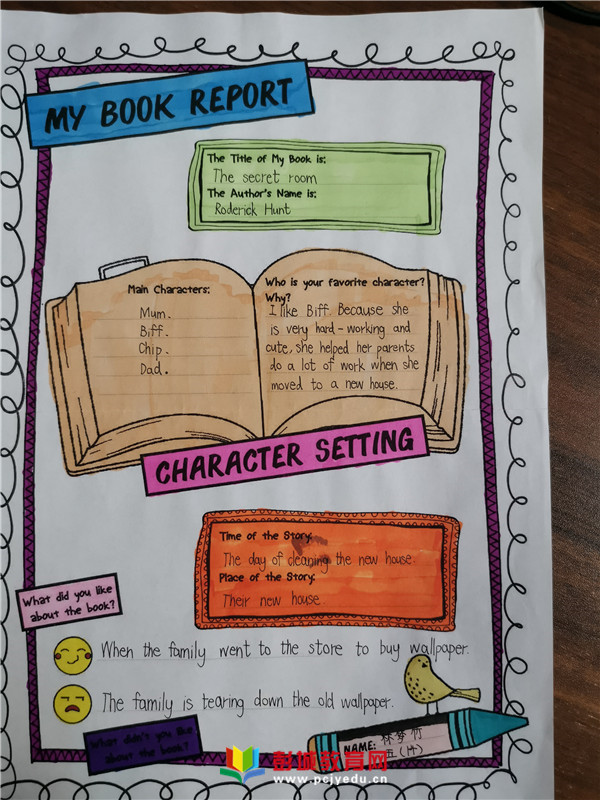 MY BOOK REPORT
The Title of My Book is:
The secret room
The Author's Name is:
Roderick Hunt
Main Characters:
Mum.
Biff.
Chip.
Dad.
Who is your favorite character?
Why?
I like Biff. Because she
is very hard-working and
cute, she helped her parents
do a lot of work when she
moved to a new house.
CHARACTER SETTING
Time of the Story:
The day of cleaning the new house.
Place of the Story:
Their new house.
What did you like
about the book?
When the family went to the store to buy wallpaper.
The family is tearing down the old wallpaper.
What didn't you like
about the book?
NAME:
彭城教育网
www.pcjyedu.cn